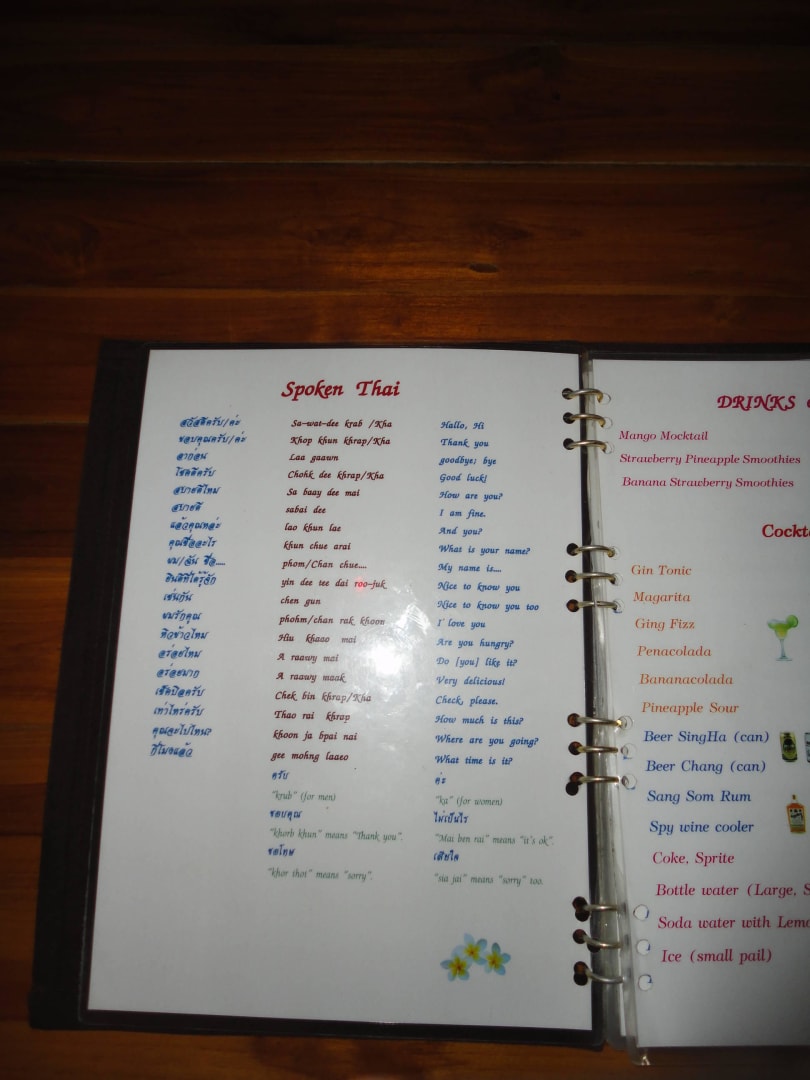 Spoken Thai
สวัสดีครับ/ค่ะ Sa-wat-dee krab /Kha Hallo, Hi
ขอบคุณครับ/ค่ะ Khop khun khrap/Kha Thank you
ลาก่อน Laa gaawn goodbye; bye
โชคดีครับ Chohk dee khrap/Kha Good luck!
สบายดีไหม Sa baay dee mai How are you?
สบายดี sabai dee I am fine.
แล้วคุณหล่ะ lao khun lae And you?
คุณชื่ออะไร khun chue arai What is your name?
ผม/ฉัน ชื่อ..... phom/Chan chue..... My name is....
ยินดีที่ได้รู้จัก yin dee tee dai roo-juk Nice to know you
เช่นกัน chen gun Nice to know you too
ผมรักคุณ phohm/chan rak khoon I love you
หิวข้าวไหม Hiu khaao mai Are you hungry?
อร่อยไหม A raawy mai Do [you] like it?
อร่อยมาก A raawy maak Very delicious!
เช็คบิลครับ Chek bin khrap/Kha Check, please.
เท่าไหร่ครับ Thao rai khrap How much is this?
คุณจะไปไหน? khoon ja bpai nai Where are you going?
กี่โมงแล้ว gee mohng laaeo What time is it?
ครับ ค่ะ
"krub" (for men) "ka" (for women)
ขอบคุณ ไม่เป็นไร
"khorb khun" means "Thank you". "Mai ben rai" means "it's ok".
ขอโทษ เสียใจ
"khor thot" means "sorry". "sia jai" means "sorry" too.
DRINKS
Mango Mocktail
Strawberry Pineapple Smoothies
Banana Strawberry Smoothies
Gin Tonic
Magarita
Ging Fizz
Penacolada
Bananacolada
Pineapple Sour
Beer SingHa (can)
Beer Chang (can)
Sang Som Rum
Spy wine cooler
Coke, Sprite
Bottle water (Large,
Soda water with
Ice (small pail)